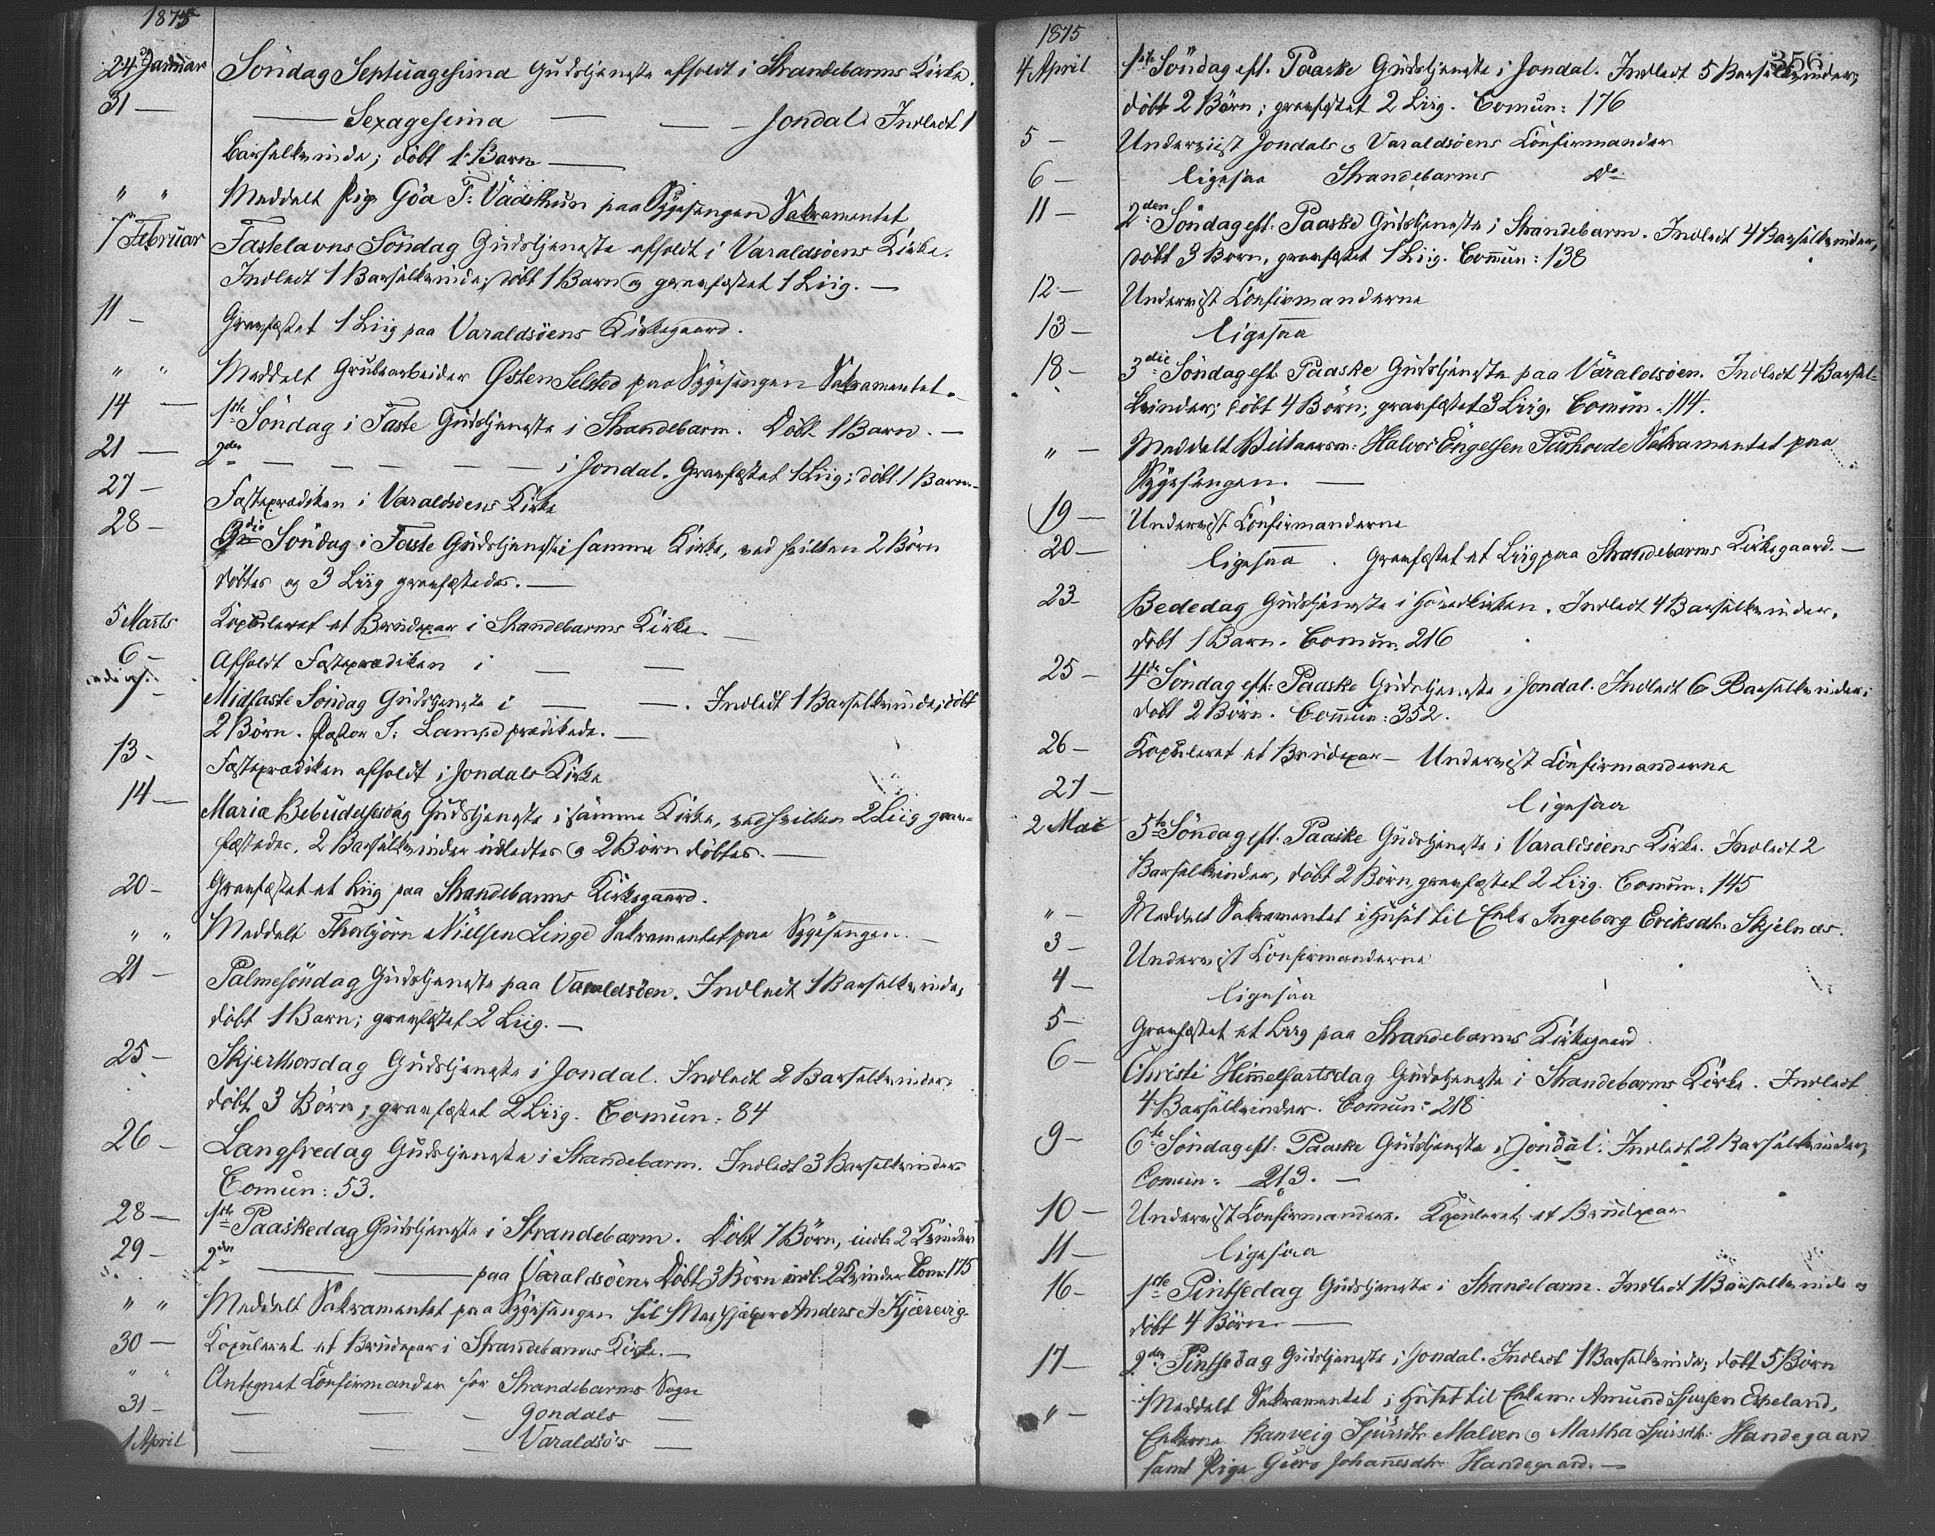 1875
24 Januar Söndag Septuagesima Gudstjeneste afholdt i Strandebarms Kirke.
31 — — Sexagesima — — Jondal. Indledt 1
Barselkvinde; döbt 1 Barn —
" " Meddelt Pige Göa T. paa Sygesengen Sakramentet
7 Februar Fastelavns Söndag Gudstjeneste afholdt i Varaldsöens Kirke.
Indledt 1 Barselkvinde; döbt 1 Barn og gravfæstet 1 Liig. —
11 — Gravfæstet 1 Liig paa Varaldsöens Kirkegaard.
" " Meddelt Grubearbeider Østen Selsted paa Sygesengen Sakramentet. —
14 — 1ste Söndag i Faste Gudstjeneste i Strandebarm. Döbt 1 Barn. —
21 — 2den — — — — — i Jondal. Gravfæstet 1 Liig; döbt 1 Barn. —
27 — Fasteprædiken i Varaldsöens Kirke
28 — 3die Söndag i Faste Gudstjeneste i samme Kirke, ved hvilken 2 Börn
döbtes og 3 Liig gravfæstedes. —
5 Marts Kopuleret et Brudepar i Strandebarms Kirke. —
6 — Afholdt Fasteprædiken i — —
7 — Midfaste Söndag Gudstjeneste i — —. Indledt 1 Barselkvinde; döbt
2 Börn. Pastor J. prædikede. —
13 - Fasteprædiken afholdt i Jondals Kirke
14 — Maria Bebudelsesdag Gudstjeneste i samme Kirke, ved hvilken 2 Liig grav-
fæstedes, 2 Barselkvinder indledtes og 2 Börn döbtes. —
20 — Gravfæstet et Liig paa Strandebarms Kirkegaard.
" " Meddelt Thorbjörn Nielsen Linge Sakramentet paa Sygesengen. —
21 — Palmesöndag Gudstjeneste paa Varaldsöen. Indledt 1 Barselkvinde,
döbt 1 Barn; gravfæstet 2 Liig. —
25 — Skjerthorsdag Gudstjeneste i Jondal. Indledt 2 Barselkvinder,
döbt 3 Börn; gravfæstet 2 Liig. Comun: 84
26 — Langfredag Gudstjeneste i Strandebarm. Indledt 3 Barselkvinder
Comun: 53.
28 — 1ste Paaskedag Gudstjeneste i Strandebarm. Döbt 7 Börn, indl. 2 Kvinder
29 — 2den — — paa Varaldsöen. Döbt 3 Börn indl: 2 Kvinder Com: 175
" " Meddelt Sakramentet paa Sygesengen til Anders A Kjærevig
30 — Kopuleret et Brudepar i Strandebarms Kirke. —
" " Antegnet Confirmander for Strandebarms Sogn
31 — — — — Jondals —
1 April — — — Varaldsö's —
1875
356
4 April 1ste Söndag eft. Paaske Gudstjeneste i Jondal. Indledt 5 Barselkvinder,
döbt 2 Börn; gravfæstet 2 Liig. Comun: 176
5 — Underviist Jondals og Varaldsöens Confirmander
6 — ligesaa Strandebarms Do
11 — 2den Söndag eft: Paaske Gudstjeneste i Strandebarm. Indledt 4 Barselkvinder,
döbt 3 Börn, gravfæstet 1 Liig. Comun: 138
12 — Underviist Confirmanderne
13 — ligesaa
18 — 3die Söndag eft. Paaske Gudstjeneste paa Varaldsöen. Indledt 4 Barsel-
kvinder; döbt 4 Börn; gravfæstet 3 Liig. Comun. 114.
" — Meddelt Halvor Engelsen Sakramentet paa
Sygesengen. —
19 — Underviist Confirmanderne
20 — ligesaa. Gravfæstet et Liig paa Strandebarms Kirkegaard. —
23 Bededag Gudstjeneste i Hovedkirken. Indledt 4 Barselkvinder,
döbt 1 Barn. Comun. 216
25 — 4de Söndag eft: Paaske Gudstjeneste i Jondal. Indledt 6 Barselkvinder;
döbt 2 Börn. Comun: 352.
26 — Kopuleret et Brudepar — Underviist Confirmanderne
27 — ligesaa
2 Mai 5te Söndag eft. Paaske Gudstjeneste i Varaldsöens Kirke. Indledt 2
Barselkvinder, döbt 2 Börn, gravfæstet 2 Liig. Comun: 145
" — Meddelt Sakramentet i Huset til Enke Ingeborg Eriksdtr Skjelnæs.
3 — Underviist Confirmanderne
4 — ligesaa
5 — Gravfæstet et Liig paa Strandebarms Kirkegaard
6 — Christi Himmelfartsdag Gudstjeneste i Strandebarms Kirke. Indledt
4 Barselkvinder. Comun: 218
9 — 6te Söndag eft: Paaske Gudstjeneste i Jondal. Indledt 2 Barselkvinder,
Comun: 213. —
10 — Underviist Confirmander. Kopuleret et Brudepar
11 — ligesaa
16 — 1ste Pintsedag Gudstjeneste i Strandebarm. Indledt 1 Barselkvinde og
döbt 4 Börn. —
17 — 2den Pintsedag Gudstjeneste i Jondal. Indledt 1 Barselkvinde; döbt 5 Börn
" — Meddelt Sakramentet i Huset til Enkem: Amund Espeland,
Enkerne Ranveig Sjursdtr Malven og Martha Sjursdtr Handegaard
samt Pige Guro Johannesdtr Handegaard. —